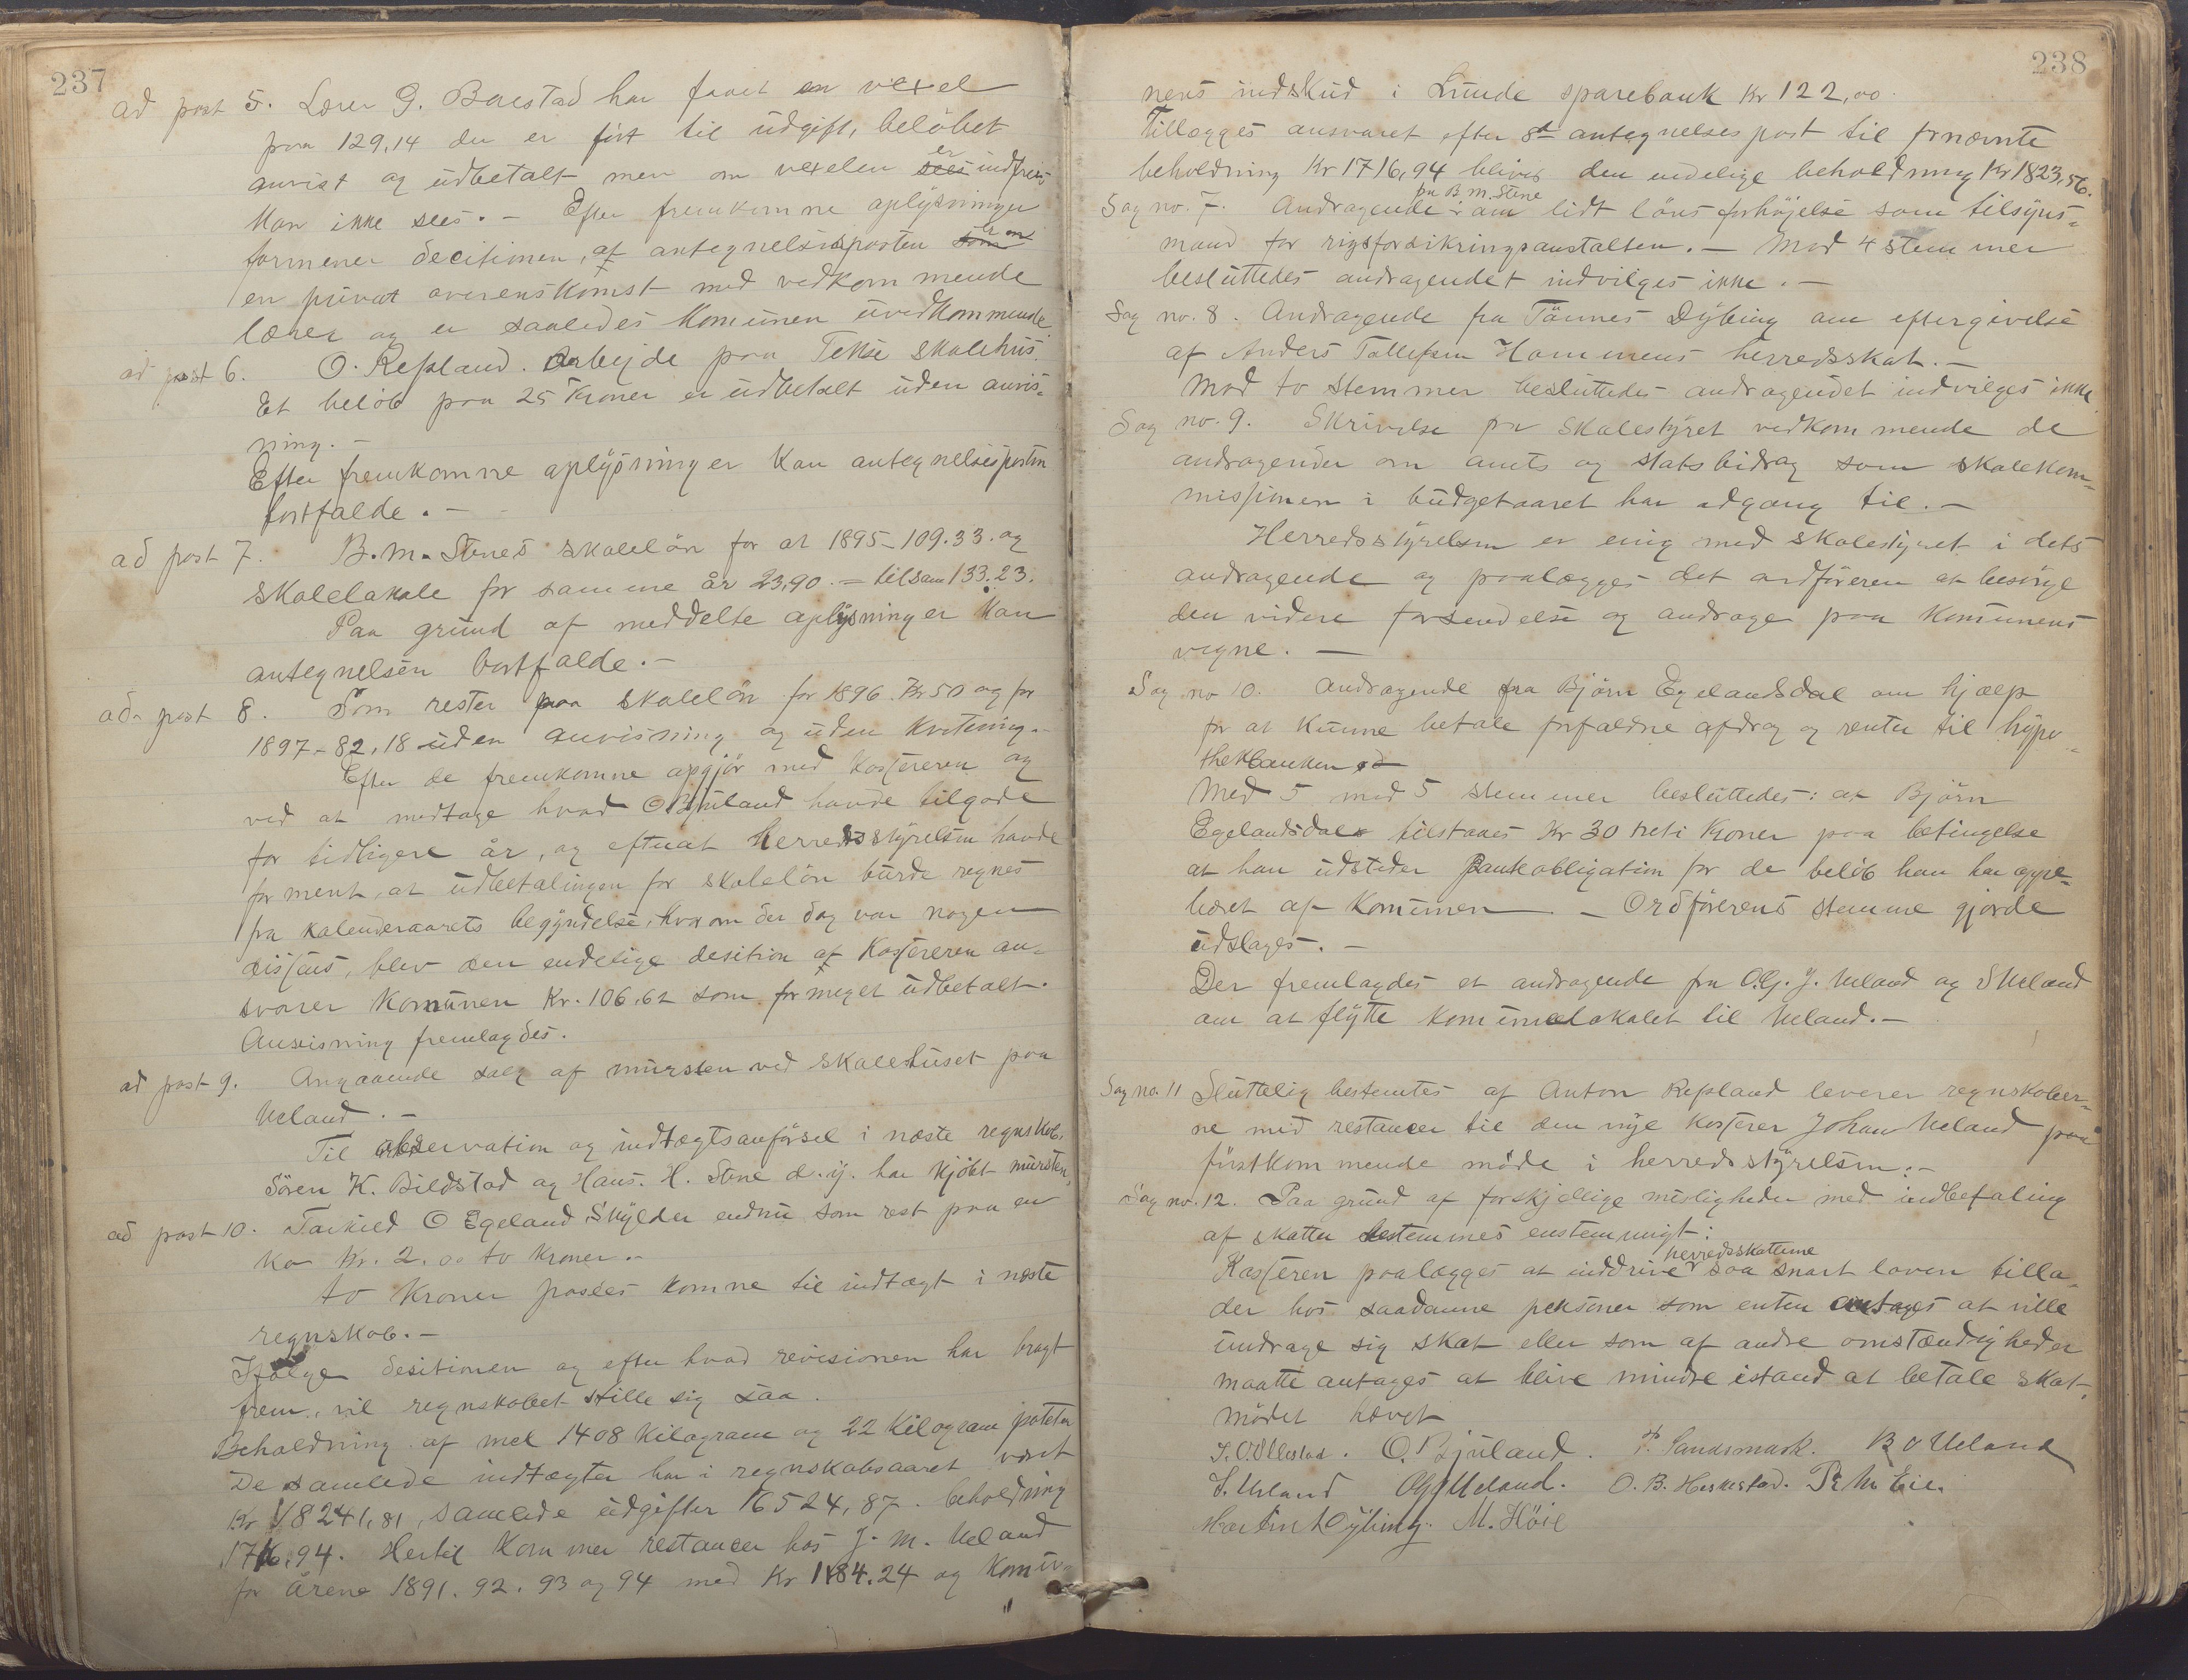 237
ad post 5. Lærer G. Barstad har faaet en vexel
paa 129,14 der er ført til udgift, beløbet
anvist og udbetalt men om vexelen sees er indfriet
kan ikke sees. – Efter fremkomne oplysninger
formener decitionen, at antegnelsesposten som er en
en privat overenskomst med vedkommende
lærer og er saaledes komunen uvedkommende
ad post 6. O. Refsland. Arbejde paa Tekse skolehus.
Et beløb paa 25 kroner er udbetalt uden anvis-
ning. –
Efter fremkomne oplysninger kan antegnelsesposten
bortfalde. –
ad post 7. B. M. Stenes skoleløn for at 1895 – 109.33. og
skolelokale for samme år 23,90. = tilsam 133.23.
Paa grund af meddelte oplysninger kan
antegnelsen bortfalde. –
ad post 8. Som rester paa skoleløn for 1896. Kr 50 og for
1897 – 82,18 uden anvisning og uden kvitering.
Efter de fremkomne opgjør med kasereren og
ved at medtage hvad O Bjuland havde tilgode
for tidligere år, og efterat herredsstyrelsen havde
forment, at udbetalingen for skoleløn burde regnes
fra kalenderaarets begyndelse, hvorom der dog var nogen
disens, blev den endelige desition at kassereren an-
svarer komunen Kr. 106,62 som for meget udbetalt.
Anvisning fremlagdes.
ad post 9. Angaaende salg af mursten ved skolehuset paa
Ueland. –
Til observation og indtægtsanførsel i næste regnskob.
Søren K. Bildstad og Hans. H. Stene d. y. har kjøbt mursten,
ad post 10. Tarkield O Egeland Skylder endnu som rest paa en
ko kr. 2.00 to kroner. –
to kroner posdes komne til indtægt i næste
regnskob. –
Ifølge desitionen og efter hvad revisionen har bragt
frem, vil regnskobet stille sig saa.
Beholdning af mel 1408 kilogram og 22 kilogram poteter
De samlede indtægter har i regnskabsaaret været
Kr 18241,81, samlede udgifter 16524,87. beholdning
1716,94. Hertil kommer restancer hos J. M. Ueland
for årene 1891. 92. 93 og 94 med Kr 1184.24 og komu-
238
nens indskud i Lunde sparebank Kr 122,00.
Tillægges ansvaret efter 8de antegnelses post til fornævnte
beholdning Kr 1716,94 bliver den endelige beholdning Kr 1823,56.
Sag no. 7. Andragende fra B. M. Stene om lidt løns forhøjelse som tilsyns-
mand for rigsforsikringsanstalten. – Mod 4 stemmer
besluttedes andragendet indvilges ikke. –
Sag no. 8. Andragende fra Tønnes Dybing om eftergivelse
af Anders Tollefsen Hommens herredsskat. –
Mod to stemmer besluttedes andragendet indvilges ikke
Sag no. 9. Skrivelse fra skolestyret vedkommende de
andragender om amts og stats bidrag som skolekom-
missionen i budgetaaret har adgang til. –
Herredsstyrelsen er enig med skolestyret i dets
andragende og paalægges det ordføreren at besørge
den videre forsendelse og andrage paa komunens
vegne. –
Sag no 10. Andragende fra Bjørn Egelandsdal om hjælp
for at kunne betale forfaldne afdrag og renter til hypo-
thekbanken
Med 5 mod 5 stemmer besluttedes: at Bjørn
Egelandsdal tilstaaes Kr 30 treti kroner paa betingelse
at han udsteder Panteobligation for de beløb han har oppe-
baaret af Komunen – Ordførerens stemme gjorde
udslaget. –
Der fremlagdes et andragende fra O. G. J. Ueland og S Ueland
om at flytte komunelokalet til Ueland. –
Sag no. 11 Sluttelig bestemtes at Anton Refsland leverer regnskober-
ne med restancer til den nye kasserer Johan Ueland paa
førstkommende møde i herredsstyrelsen. –
Sag no. 12. Paa grund af forskjellige misligheder med indbetaling
af skatter bestemmes enstemmigt:
Kasseren paalægges at inddrive herredsskatterne saa snart loven tilla-
der hos saadanne personer som enten antages at ville
undrage sig skat eller som af andre omstændigheder
maatte antages at blive mindre istand at betale skat.
Mødet hævet
T. O. Ollestad. O. Bjuland. P Sandsmark. B O Ueland
S. Ueland OGJUeland. O. B. Heskestad. B. M. Eie.
Martin Dybing. M. Höie